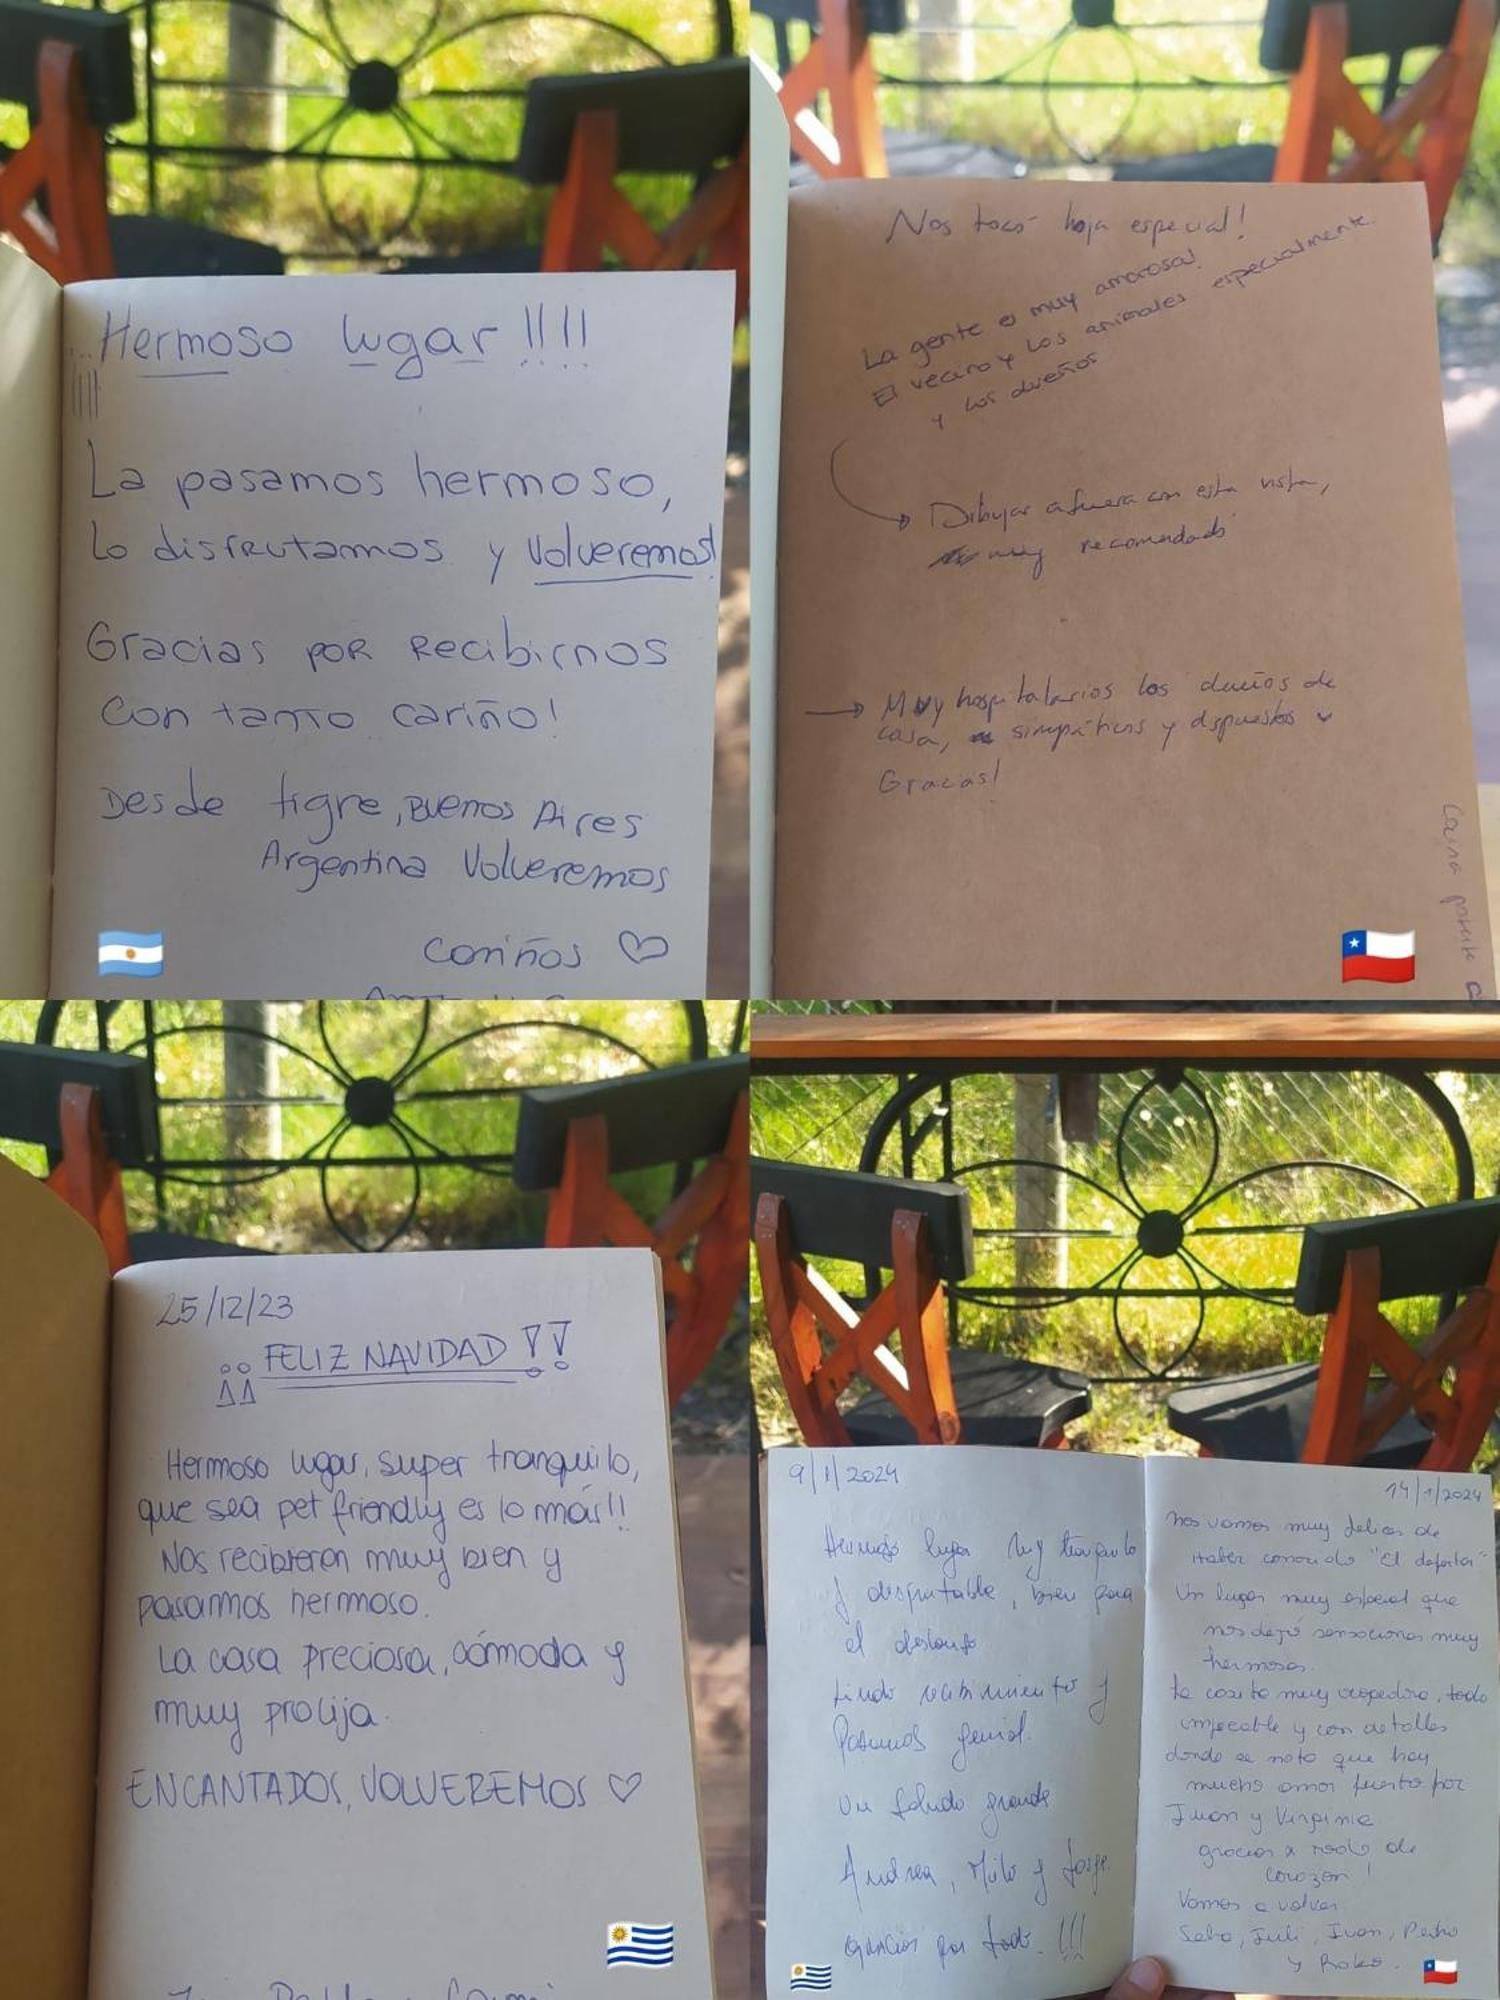 ¡¡¡¡Hermoso lugar !!!!
La pasamos hermoso,
Lo disfrutamos y volveremos!
Gracias por Recibirnos
con tanto cariño!
Desde tigre, Buenos Aires
Argentina Volveremos
Cariños ♡
Nos tocó hoja especial!
La gente es muy amorosa!
El vecino y los animales especialmente.
y los dueños
Dibujar afuera con esta vista,
muy recomendado
→ Muy hospitalarios los dueños de
casa, simpáticos y dispuestos
Gracias!
25/12/23
¡¡ FELIZ NAVIDAD !!
Hermoso lugar, super tranquilo,
que sea pet friendly es lo más!!
Nos recibieron muy bien y
pasamos hermoso.
La casa preciosa, cómoda y
muy prolija.
ENCANTADOS, VOLVEREMOS ♡
9/1/2024
Hermoso lugar Muy tranquilo
y disfrutable, bien para
el descanso
Lindo recibimiento y
Pasamos genial.
Un saludo grande
Andrea, Milo y Jorge.
Gracias por todo. !!!
14/1/2024
Nos vamos muy felices de
Haber conocido "El
Un lugar muy especial que
nos dejó sensaciones muy
hermosas.
La casita muy acogedora, todo
impecable y con detalles
donde se nota que hay
mucho amor puesto por
Juan y Virginia
gracias x todo de
corazon!
Vamos a volver.
Seba, Juli, Juan, Pedro
y Roko.